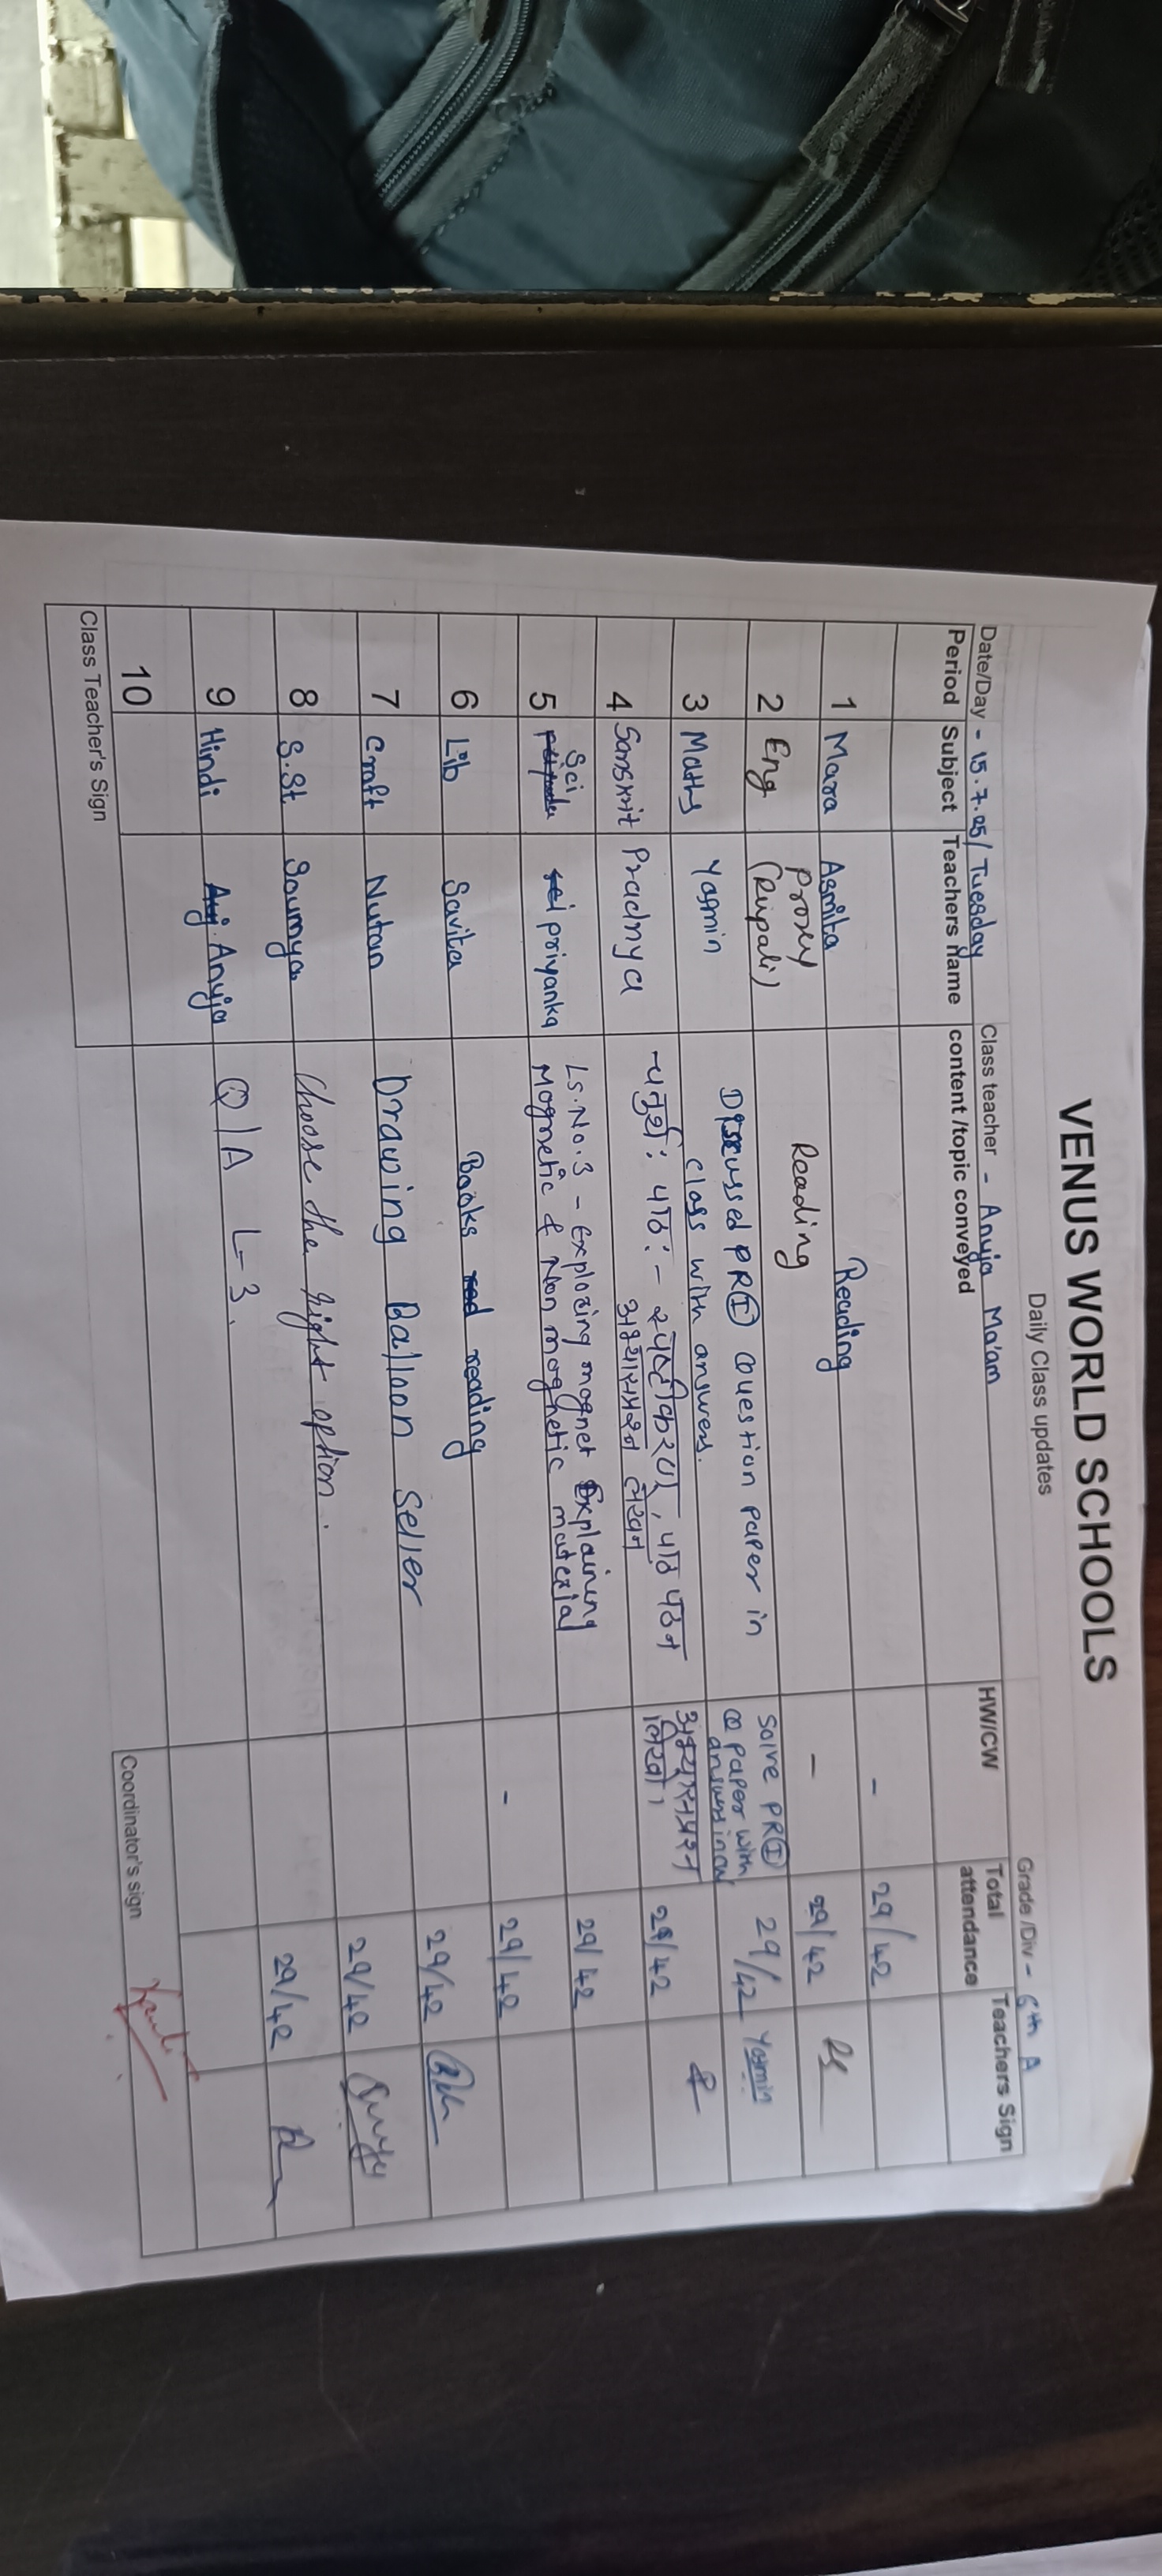 VENUS WORLD SCHOOLS
Daily Class updates
Date/Day - 15.7.25/Tuesday Class teacher - Anuja Ma'am Grade /Div - 6th A
Period Subject Teachers name content /topic conveyed HW/CW Total attendance Teachers Sign
1 Mara Asmita Reading - 29/42
2 Eng Proxy (Rupali) Reading - 29/42
3 Maths Yasmin Discussed PR(I) Question paper in class with answers. Solve PR(I) Q paper with answers in CW 29/42 Yasmin
4 Sanskrit Pradnya चतुर्थ: पाठ: - स्पष्टीकरण, पाठ पठन
अभ्यासप्रश्न लेखन अभ्यासप्रश्न लिखो। 29/42
5 Sci priyanka Ls.No.3 - Exploring magnet Explaining
Magnetic & Non magnetic material 29/42
6 Lib Savita Books reading - 29/42
7 Craft Nutan Drawing Balloon Seller 29/42
8 S.St Soumya Choose the right option. 29/42
9 Hindi Anuja Q/A L-3. 29/42
10
Class Teacher's Sign Coordinator's sign